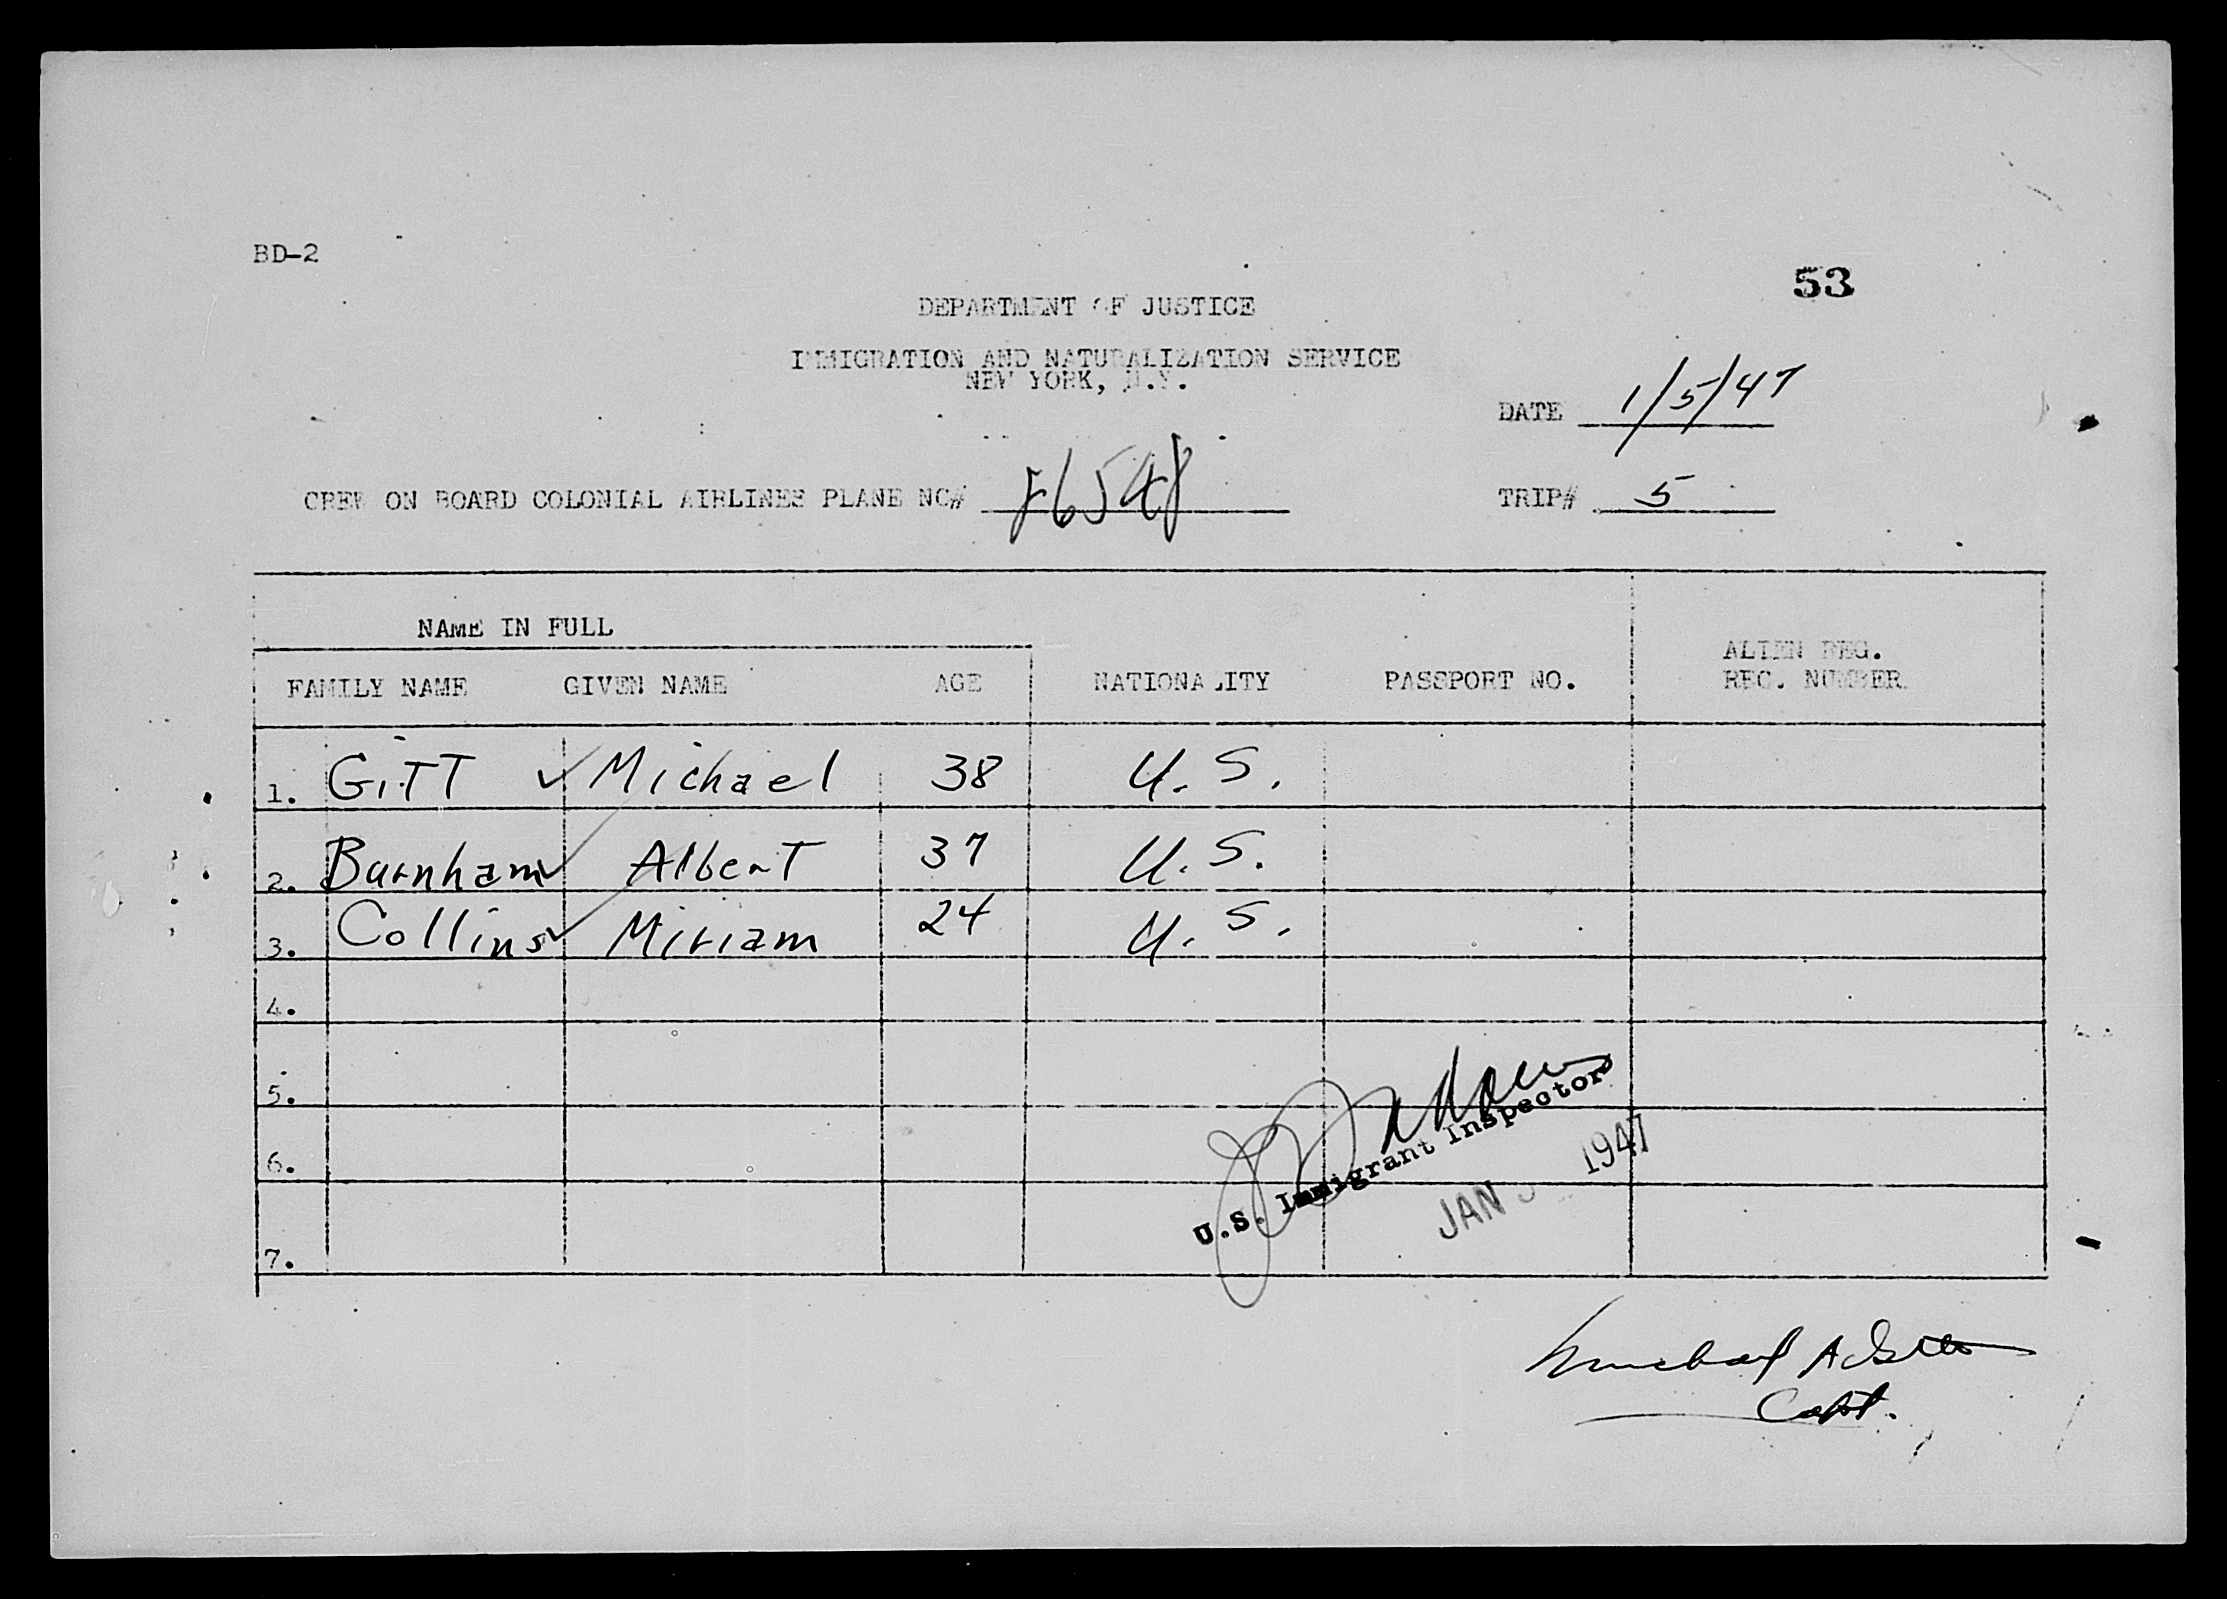 BD-2
53
DEPARTMENT OF JUSTICE
IMMIGRATION AND NATURALIZATION SERVICE
NEW YORK, N.Y.
DATE 1/5/47
CREW ON BOARD COLONIAL AIRLINES PLANE NC# 86548
TRIP# 5
NAME IN FULL
FAMILY NAME GIVEN NAME AGE NATIONALITY PASSPORT NO. ALIEN REG. REC. NUMBER
1. GiTT Michael 38 U.S.
2. Burnham Albert 37 U.S.
3. Collins Miriam 24 U.S.
4.
5.
6.
7.
U.S. Immigrant Inspector
JAN 1947
Michael A Gitt
Capt.